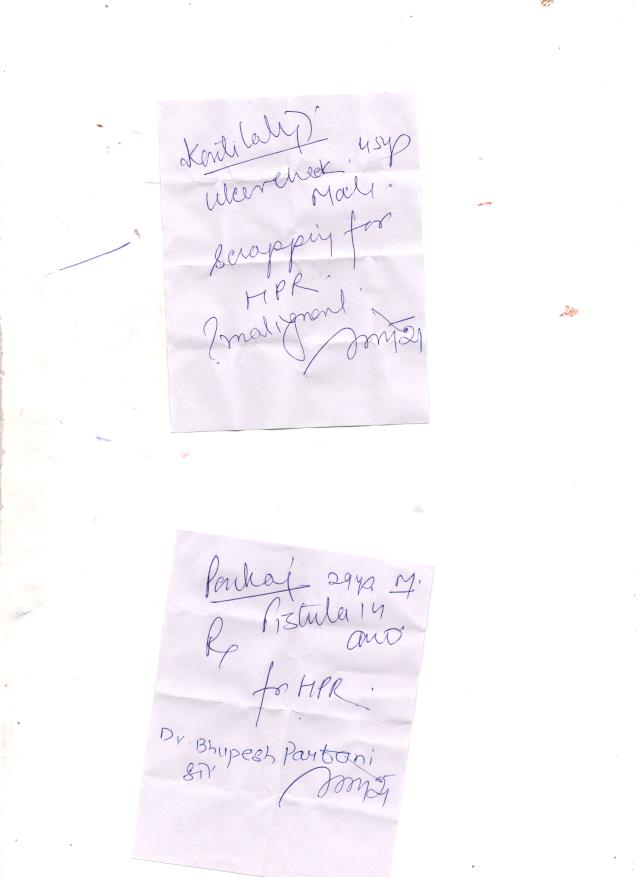 Kantilalji
ulcer cheek. 45yr
Male.
Scrapping for
HPR.
?malignant.
Pankaj 29yr M.
Rx Fistula in
ano
for HPR.
Dr. Bhupesh Partani
Sir